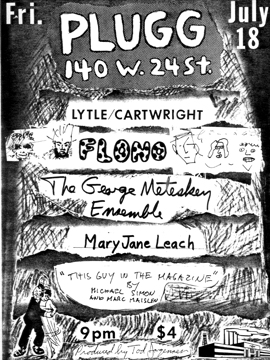 Fri.
July
18
PLUGG
140 W. 24 St.
LYTLE/CARTWRIGHT
FLONO
The George Meteskey
Ensemble
Mary Jane Leach
"THIS GUY IN THE MAGAZINE"
BY
MICHAEL SIMON
AND MARC MAISLEN
9pm
$4
Produced by Tod